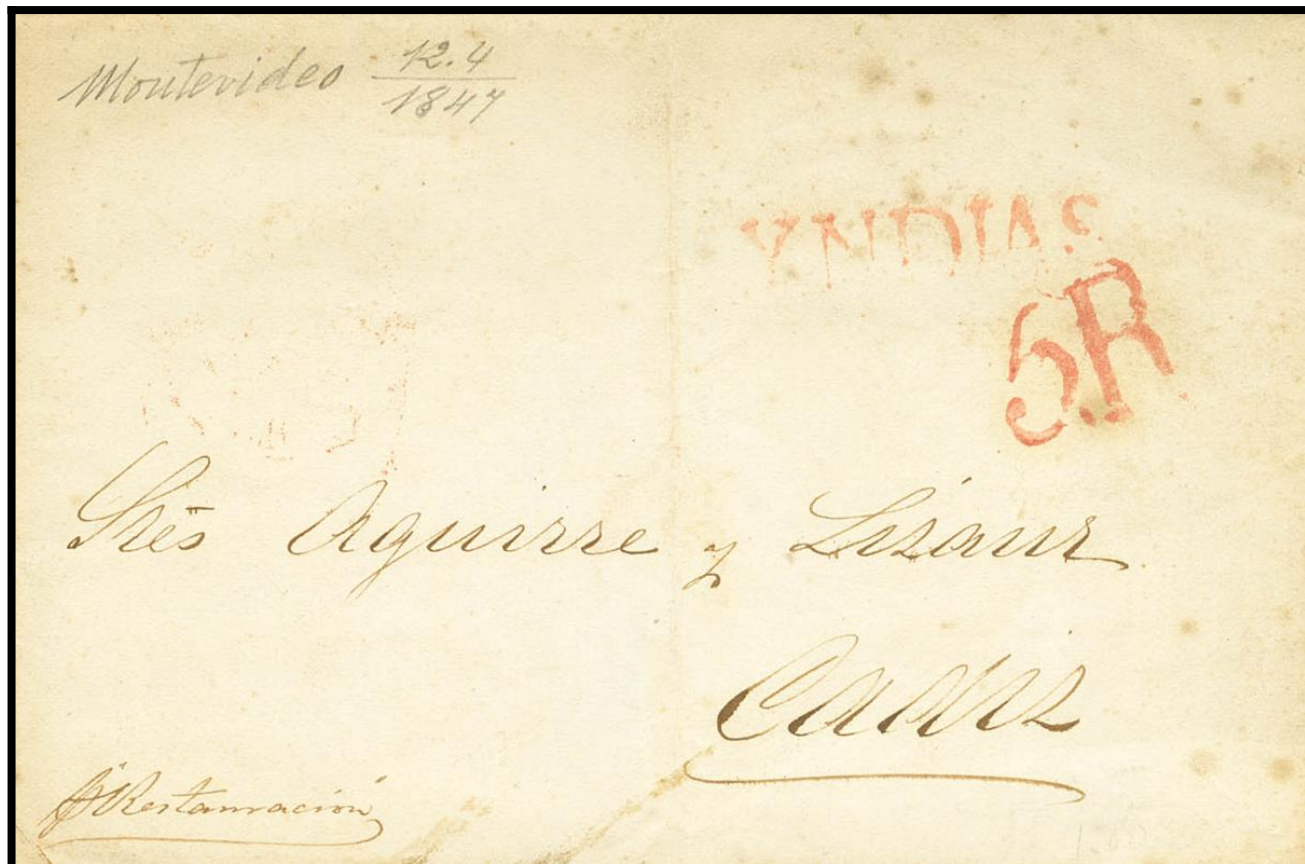 Montevideo 12.4
1847
YNDIAS
5R
Sres Aguirre y Lizaur
Cadiz
Restauración